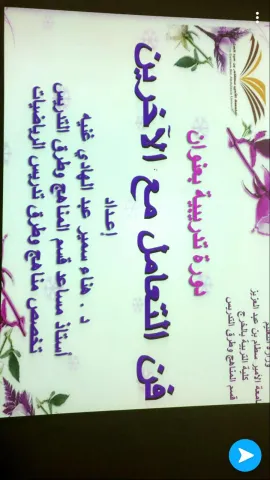 وزارة التعليم
جامعة الأمير سطام بن عبد العزيز
كلية التربية بالخرج
قسم المناهج وطرق التدريس
دورة تدريبية بعنوان
فن التعامل مع الآخرين
إعداد
د. هناء سمير عبد الهادي غنيه
أستاذ مساعد قسم المناهج وطرق التدريس
تخصص مناهج وطرق تدريس الرياضيات